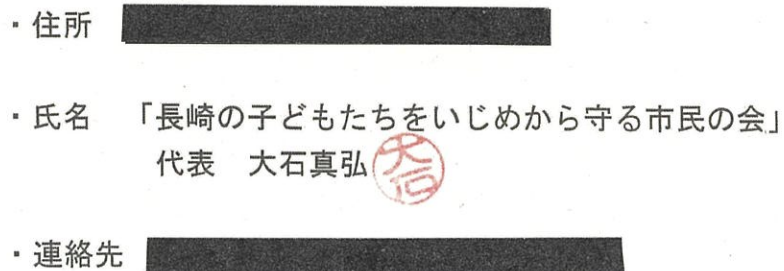 ・住所
・氏名 「長崎の子どもたちをいじめから守る市民の会」
代表 大石真弘
大石
・連絡先